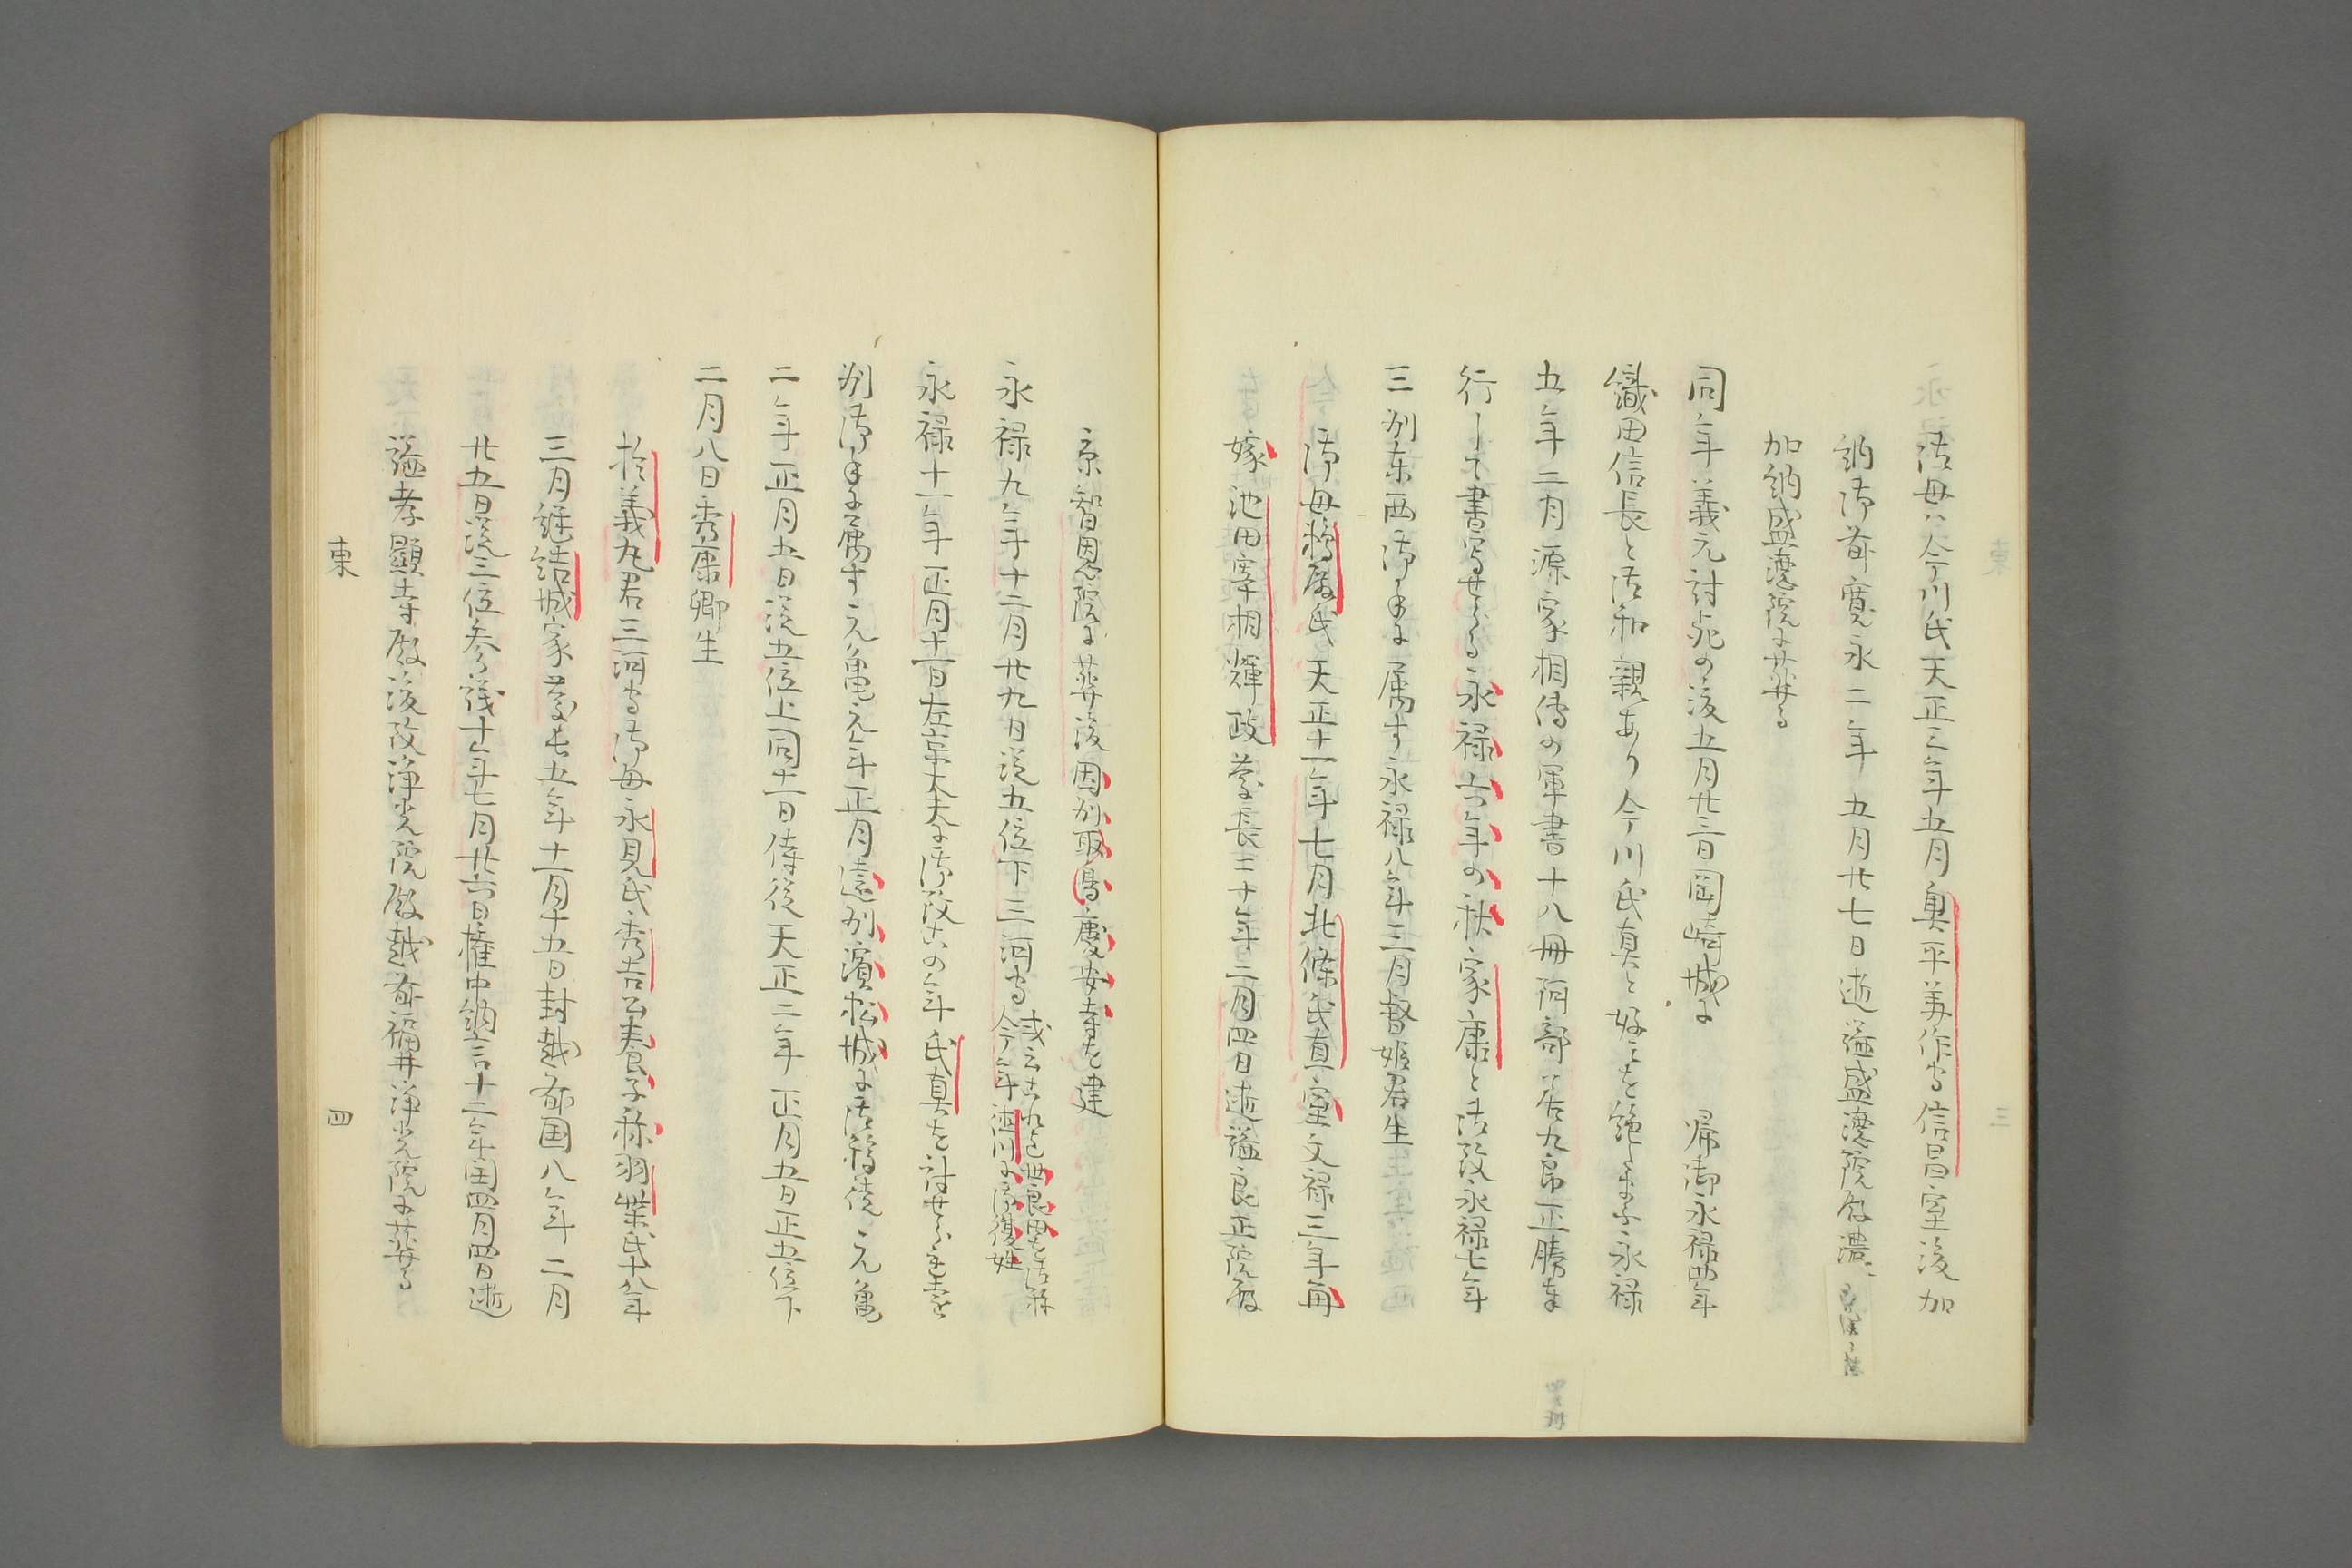 御母ハ今川氏天正三年五月奥平美作守信昌室後加
納御前寛永二年五月廿七日逝諡盛徳院殿濃
加納盛徳院に葬る
同年義元討死の後五月廿三日岡崎城に 帰御永禄四年
織田信長と御和親あり今川氏真と好みを絶
永禄
五年二月源家相伝の軍書十八冊阿部善九郎正勝奉
行して書写せらる永禄六年の秋家康と御改永禄七年
三州東西御手に属す永禄八年三月督姫君生
御母鵜殿氏天正十一年七月北條氏直室文禄三年再
嫁池田宰相輝政慶長二十年二月四日逝諡良正院殿
京智恩院に葬後因州取鳥慶安寺を建
永禄九年十二月廿九日従五位下三河守
今年徳川に御復姓
永禄十一年正月十一日左京大夫に御改
の年氏真を討せ
州御手に属す元亀元年正月遠州濱松城に御移徒元亀
二年正月五日従五位上同十一日侍従天正二年正月五日正五位下
二月八日秀康卿生
於義丸君三河守御母永見氏秀吉公養子称羽柴氏十八年
三月継結城家慶長五年十一月十五日封越前国八年二月
廿五日従三位参議十年七月廿六日権中納言十二年閏四月四日逝
諡孝顕寺殿後改浄光院殿越前福井浄光院に葬る
東
四